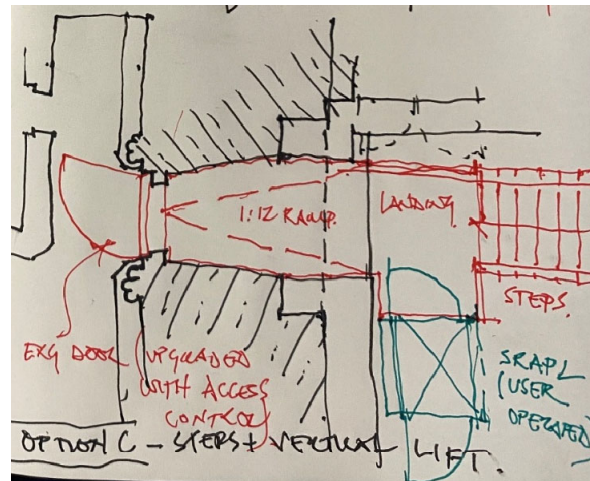 1:12 RAMP.
LANDING.
STEPS.
EXG DOOR UPGRADED
WITH ACCESS
CONTROL
SRAPL
(USER
OPERATED)
OPTION C – STEPS + VERTICAL LIFT.